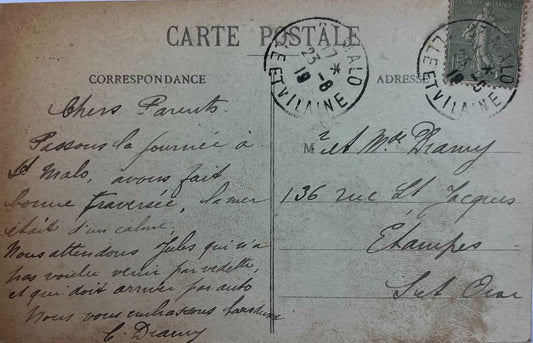 CARTE POSTALE
CORRESPONDANCE
ADRESSE
ST MALO
ILLE ET VILAINE
23 -6
19
Chers Parents
Passons la journée à
St Malo, avons fait
bonne traversée, la mer
était d'un calme,
Nous attendons Jules qui n'a
pas voulu venir par vedette,
et qui doit arriver par auto
Nous vous embrassons
C. Dramy
Mr et Mme Dramy
136 rue St Jacques
Etampes
S et Oise